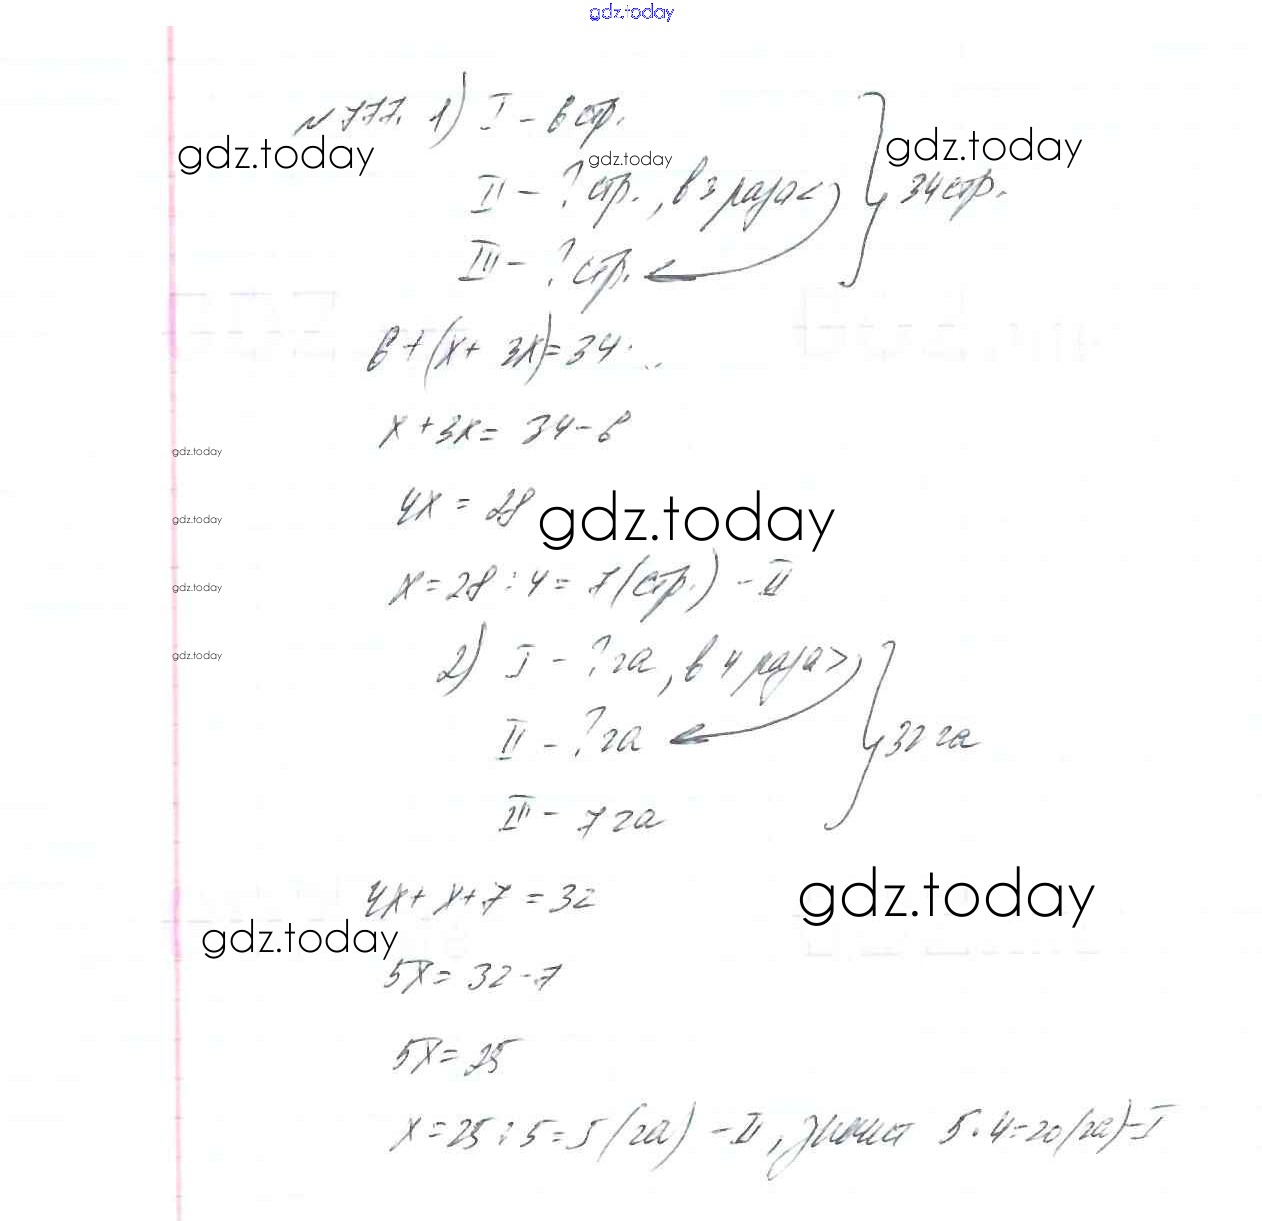 gdz.today
№ 777. 1) I - 6 стр.
gdz.today gdz.today gdz.today
II - ? стр., в 3 раза <
34 стр.
III - ? стр.
6 + (x + 3x) = 34
x + 3x = 34 - 6
gdz.today
4x = 28
gdz.today
gdz.today
x = 28 : 4 = 7 (стр.) - II
gdz.today
2) I - ? га, в 4 раза >
gdz.today
II - ? га
32 га
III - 7 га
4x + x + 7 = 32
gdz.today
gdz.today
5x = 32 - 7
5x = 25
x = 25 : 5 = 5 (га) - II, значит 5 · 4 = 20 (га) - I